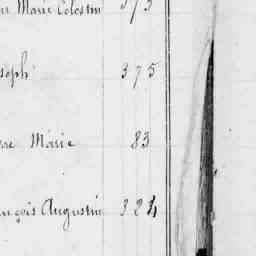 Marie Celestin 373
soph 375
re Marie 83
nçois Augustin 324